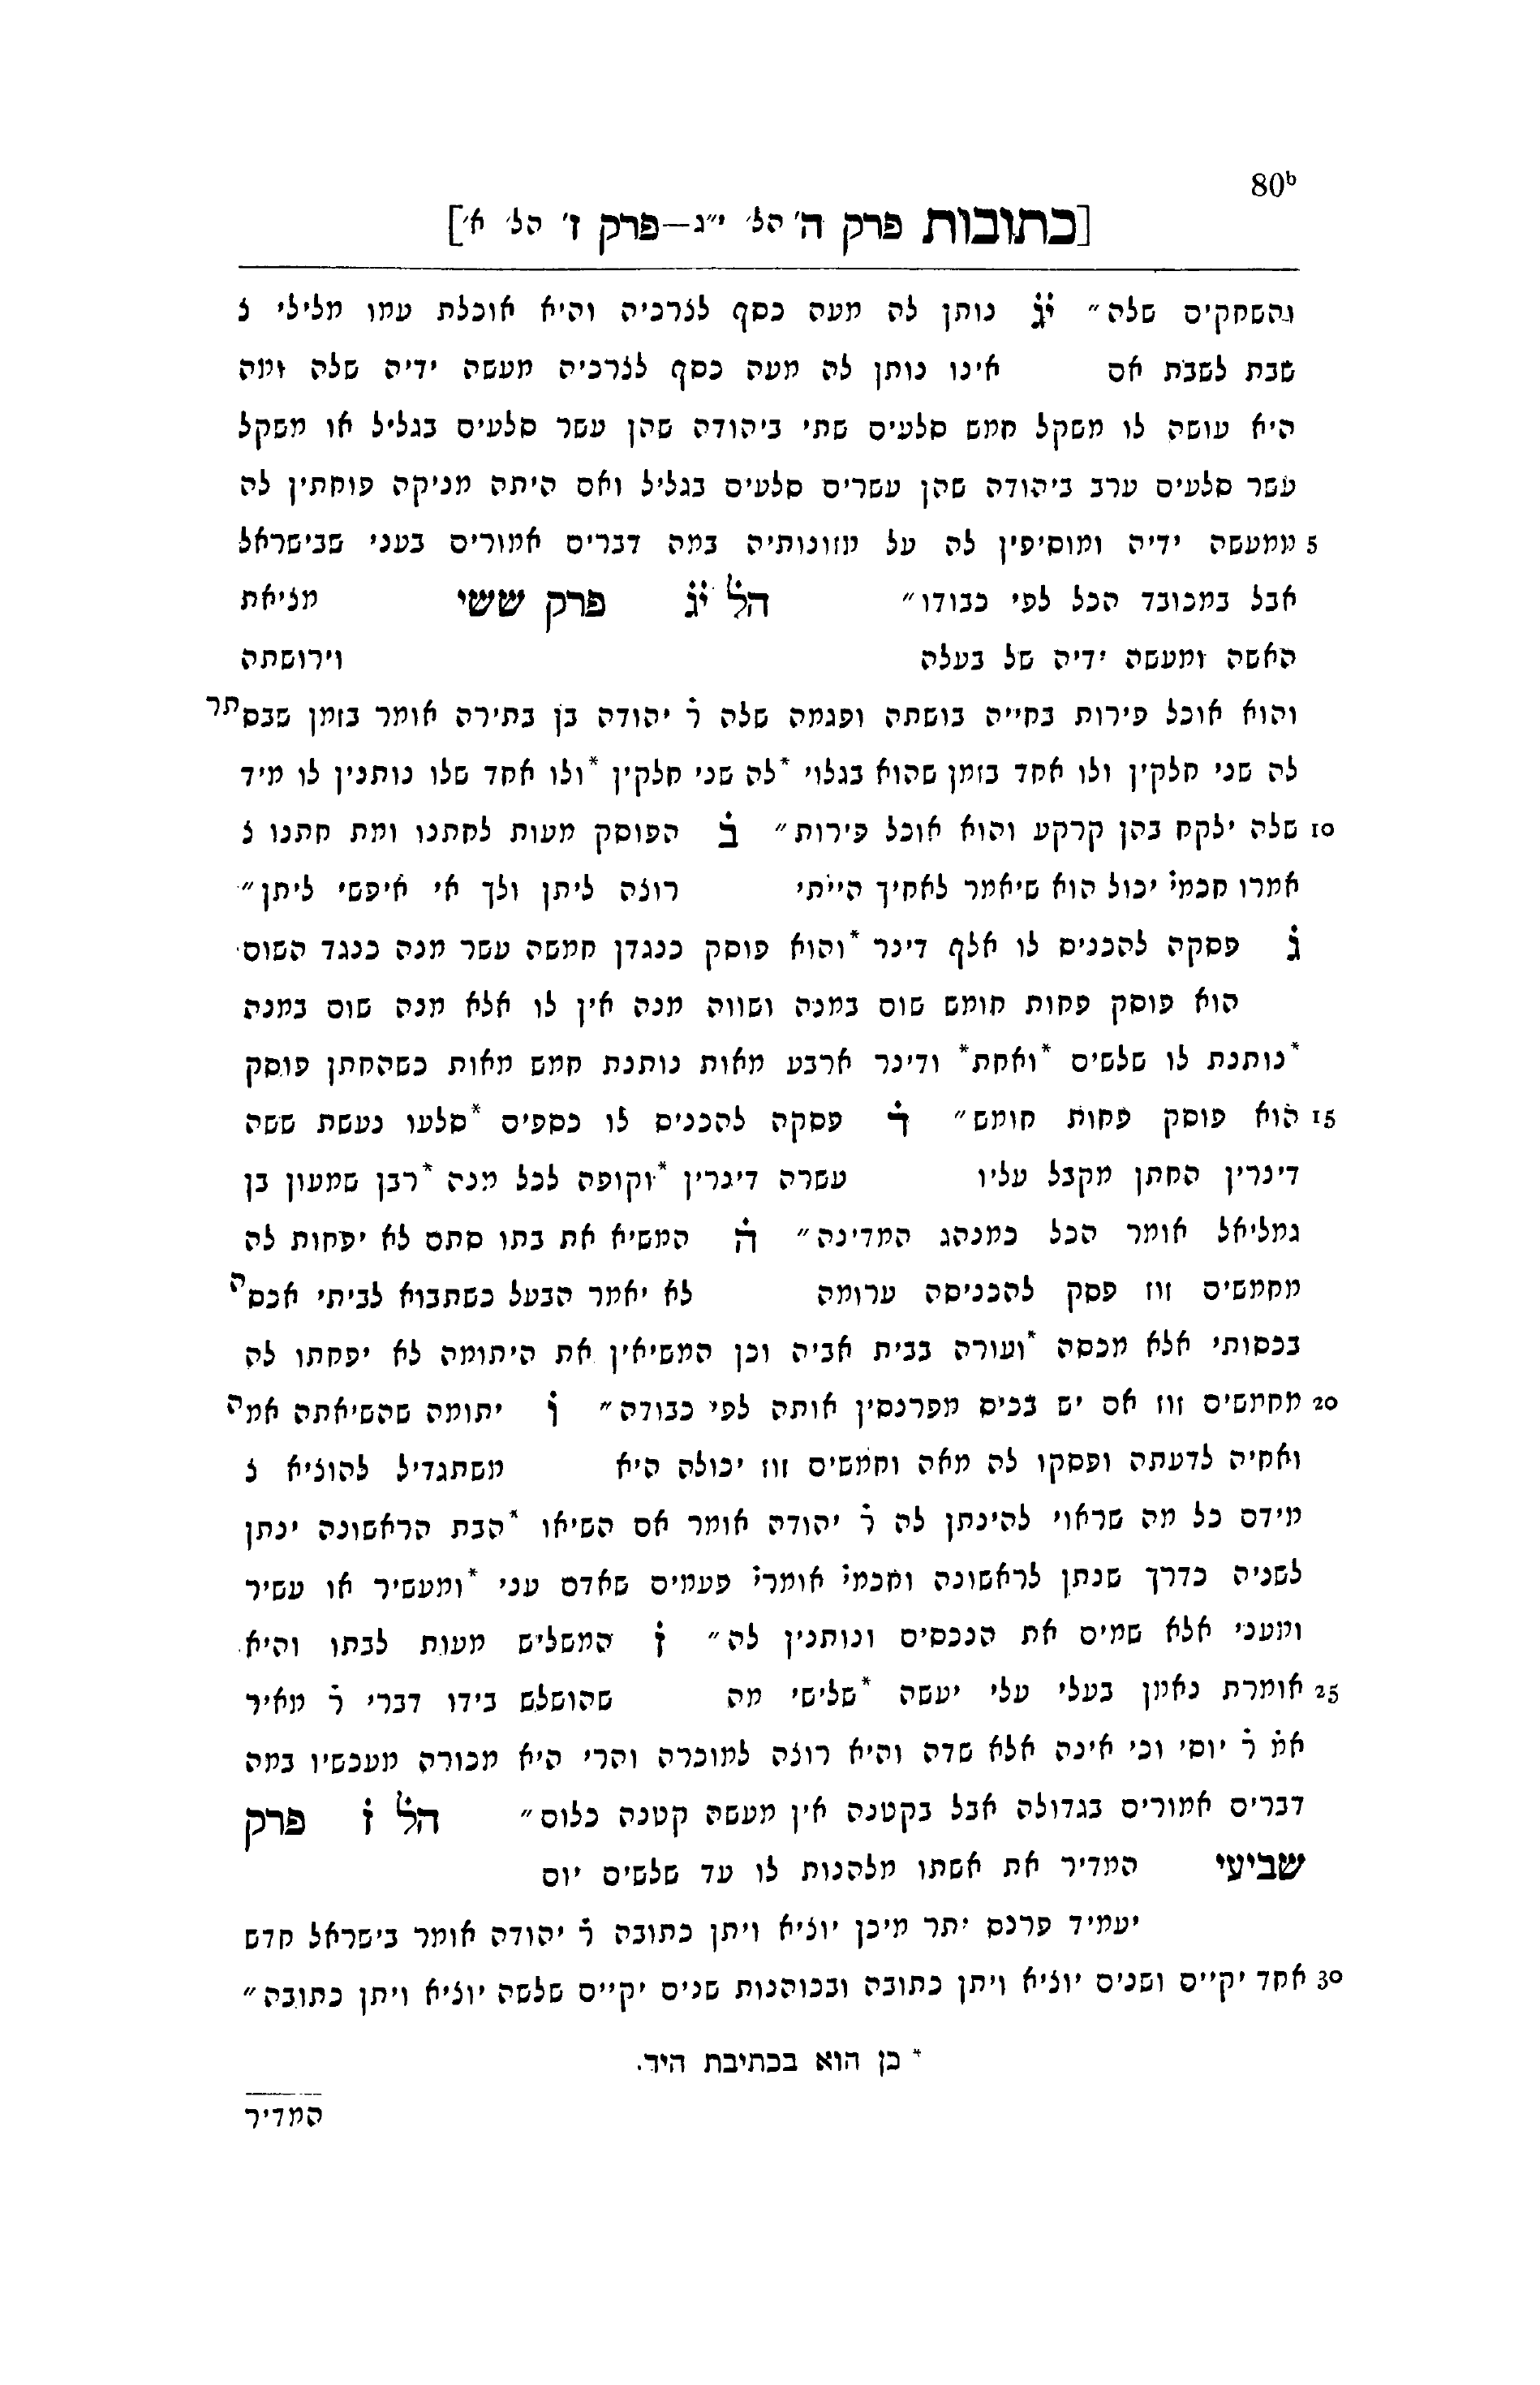 80b
[כתובות פרק ה' הל' י"ג—פרק ז' הל' א']
והשחקים שלה" יג נותן לה מעה כסף לצרכיה והיא אוכלת עמו מלילי צ
שבת לשבת אם אינו נותן לה מעה כסף לצרכיה מעשה ידיה שלה ומה
היא עושה לו משקל חמש סלעים שתי ביהודה שהן עשר סלעים בגליל או משקל
עשר סלעים ערב ביהודה שהן עשרים סלעים בגליל ואם היתה מניקה פוחתין לה
5 ממעשה ידיה ומוסיפין לה על מזונותיה במה דברים אמורים בעני שבישראל
אבל במכובד הכל לפי כבודו" הל יג פרק ששי מציאת
האשה ומעשה ידיה של בעלה וירושתה
והוא אוכל פירות בחייה בושתה ופגמה שלה ר יהודה בן בתירה אומר בזמן שבסתר
לה שני חלקין ולו אחד בזמן שהוא בגלוי *לה שני חלקין *ולו אחד שלו נותנין לו מיד
10 שלה ילקח בהן קרקע והוא אוכל פירות" ב הפוסק מעות לחתנו ומת חתנו צ
אמרו חכמי יכול הוא שיאמר לאחיך הייתי רוצה ליתן ולך אי איפשי ליתן"
ג פסקה להכניס לו אלף דינר *והוא פוסק כנגדן חמשה עשר מנה כנגד השום
הוא פוסק פחות חומש שום במנה ושווה מנה אין לו אלא מנה שום במנה
*נותנת לו שלשים *ואחת* ודינר ארבע מאות נותנת חמש מאות כשהחתן פוסק
15 הוא פוסק פחות חומש" ד פסקה להכניס לו כספים *סלעו נעשת ששה
דינרין החתן מקבל עליו עשרה דינרין *וקופה לכל מנה *רבן שמעון בן
גמליאל אומר הכל כמנהג המדינה" ה המשיא את בתו סתם לא יפחות לה
מחמשים זוז פסק להכניסה ערומה לא יאמר הבעל כשתבוא לביתי אכסה
בכסותי אלא מכסה *ועורה בבית אביה וכן המשיאין את היתומה לא יפחתו לה
20 מחמשים זוז אם יש בכיס מפרנסין אותה לפי כבודה" ו יתומה שהשיאתה אמה
ואחיה לדעתה ופסקו לה מאה וחמשים זוז יכולה היא משתגדיל להוציא צ
מידם כל מה שראוי להינתן לה ר יהודה אומר אם השיאו *הבת הראשונה ינתן
לשניה כדרך שנתן לראשונה וחכמי אומרי פעמים שאדם עני *ומעשיר או עשיר
ומעני אלא שמים את הנכסים ונותנין לה" ז המשליש מעות לבתו והיא
25 אומרת נאמן בעלי עלי יעשה *שלישי מה שהושלש בידו דברי ר מאיר
אמ ר יוסי וכי אינה אלא שדה והיא רוצה למוכרה והרי היא מכורה מעכשיו במה
דברים אמורים בגדולה אבל בקטנה אין מעשה קטנה כלום" הל ז פרק
שביעי המדיר את אשתו מלהנות לו עד שלשים יום
יעמיד פרנס יתר מיכן יוציא ויתן כתובה ר יהודה אומר בישראל חדש
30 אחד יקיים ושנים יוציא ויתן כתובה ובכוהנות שנים יקיים שלשה יוציא ויתן כתובה"
* כן הוא בכתיבת היד.
המדיר